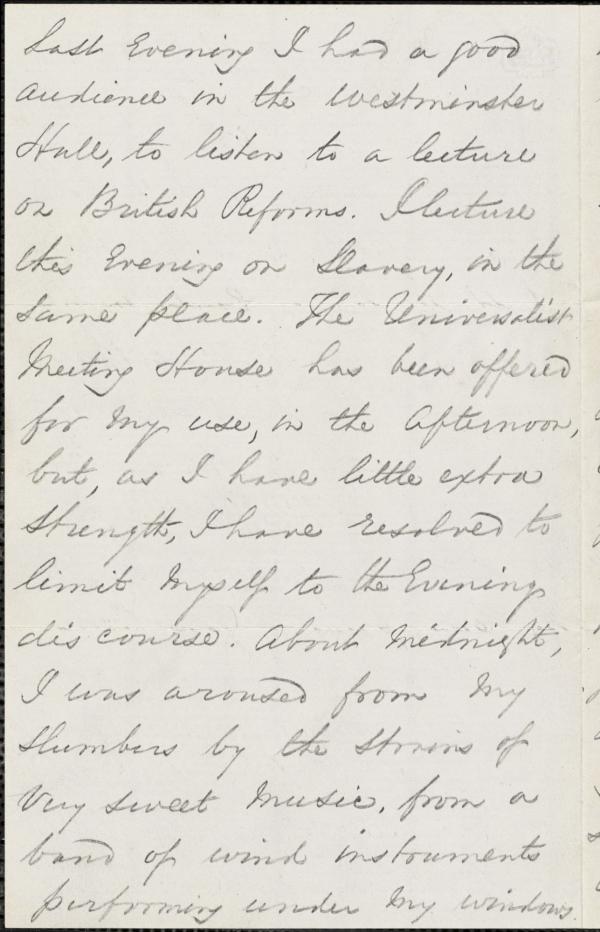 Last Evening I had a good
audience in the Westminster
Hall, to listen to a lecture
on British Reforms. I lecture
this Evening on Slavery, in the
same place. The Universalist
Meeting House has been offered
for my use, in the afternoon,
but, as I have little extra
strength, I have resolved to
limit myself to the Evening
discourse. About Midnight,
I was aroused from my
slumbers by the strains of
very sweet music, from a
band of wind instruments
performing under my windows.